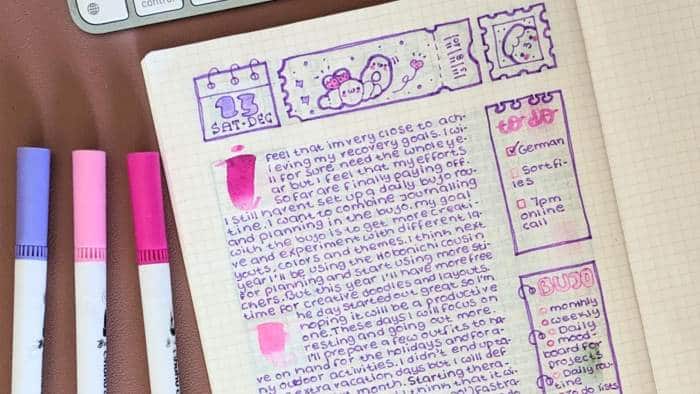 control
13
SAT-DEC
I feel that im very close to ach-
ieving my recovery goals. I wi-
ll for sure need the whole ye-
ar but I feel that my efforts
so far are finally paying off.
I still havent set up a daily bujo rou-
tine. I want to combine journalling
and planning in the bujo. my goal
with the bujo is to get more creati-
ve and experiment with different la-
youts, colors and themes. I think next
year I'll be using the Hobonichi cousin
for planning and start using more sti-
chers. But this year I'll have more free
time for creative doodles and layouts.
he day started out great so I'm
hoping it will be a productive
one. These days I will focus on
resting and going out more.
I'll prepare a few outfits to ha-
ve on hand for the holidays and for a-
ny outdoor activities. I didn't end up ta-
extra vacation days but I will def
month. Starting thera-
I think that it wi-
to do
German
sort fi-
les
7pm
online
call
BUJO
monthly
weekly
Daily
mood-
board for
projects
Daily rou-
tine
to do lists